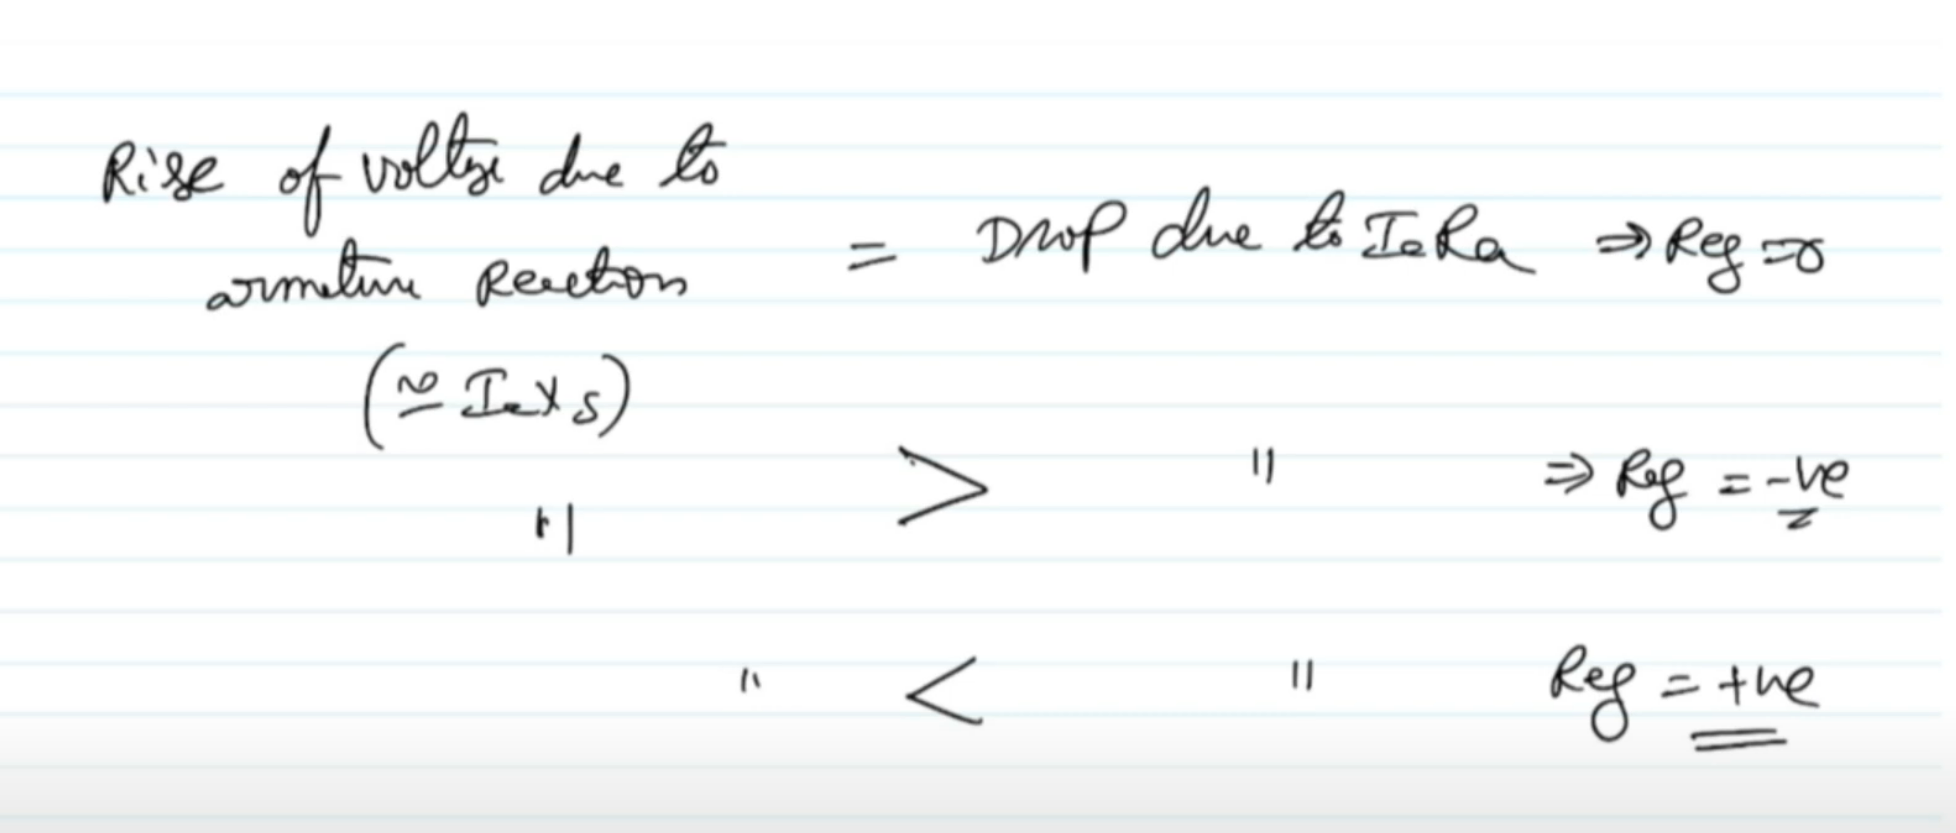 Rise of voltage due to
armature Reaction = Drop due to IaRa ⇒ Reg = 0
(≃ IaXs)
" > " ⇒ Reg = -ve
" < " Reg = +ve